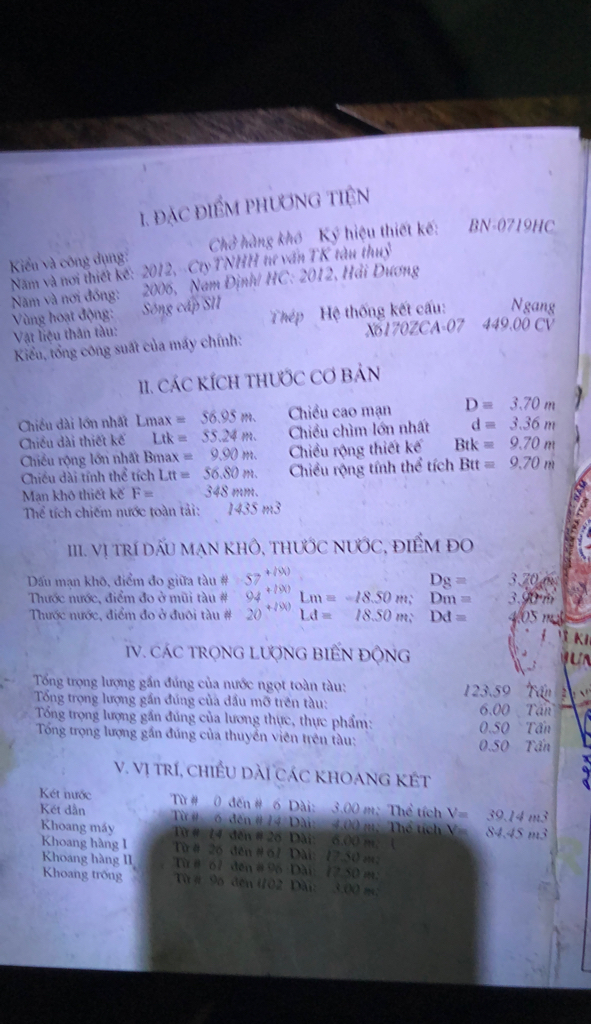 I. ĐẶC ĐIỂM PHƯƠNG TIỆN
Kiểu và công dụng: Chở hàng khô Ký hiệu thiết kế: BN-0719HC
Năm và nơi thiết kế: 2012, Cty TNHH tư vấn TK tàu thuỷ
Năm và nơi đóng: 2006, Nam Định/ HC: 2012, Hải Dương
Vùng hoạt động: Sông cấp SII
Vật liệu thân tàu: Thép Hệ thống kết cấu: Ngang
Kiểu, tổng công suất của máy chính: X6170ZCA-07 449.00 CV
II. CÁC KÍCH THƯỚC CƠ BẢN
Chiều dài lớn nhất Lmax = 56.95 m. Chiều cao mạn D = 3.70 m
Chiều dài thiết kế Ltk = 55.24 m. Chiều chìm lớn nhất d = 3.36 m
Chiều rộng lớn nhất Bmax = 9.90 m. Chiều rộng thiết kế Btk = 9.70 m
Chiều dài tính thể tích Ltt = 56.80 m. Chiều rộng tính thể tích Btt = 9.70 m
Mạn khô thiết kế F = 348 mm.
Thể tích chiếm nước toàn tải: 1435 m3
III. VỊ TRÍ DẤU MẠN KHÔ, THƯỚC NƯỚC, ĐIỂM ĐO
Dấu mạn khô, điểm đo giữa tàu # 57 +190 Dg = 3.70 m
Thước nước, điểm đo ở mũi tàu # 94 +190 Lm = -18.50 m; Dm = 3.90 m
Thước nước, điểm đo ở đuôi tàu # 20 +190 Ld = 18.50 m; Dd = 4.05 m
IV. CÁC TRỌNG LƯỢNG BIẾN ĐỘNG
Tổng trọng lượng gần đúng của nước ngọt toàn tàu: 123.59 Tấn
Tổng trọng lượng gần đúng của dầu mỡ trên tàu: 6.00 Tấn
Tổng trọng lượng gần đúng của lương thực, thực phẩm: 0.50 Tấn
Tổng trọng lượng gần đúng của thuyền viên trên tàu: 0.50 Tấn
V. VỊ TRÍ, CHIỀU DÀI CÁC KHOANG KÉT
Két nước Từ # 0 đến # 6 Dài: 3.00 m; Thể tích V= 39.14 m3
Két dằn Từ # 6 đến # 14 Dài: 4.00 m; Thể tích V= 84.45 m3
Khoang máy Từ # 14 đến # 26 Dài: 6.00 m;
Khoang hàng I Từ # 26 đến # 61 Dài: 17.50 m;
Khoang hàng II Từ # 61 đến # 96 Dài: 17.50 m.
Khoang trống Từ # 96 đến #102 Dài: 3.00 m.